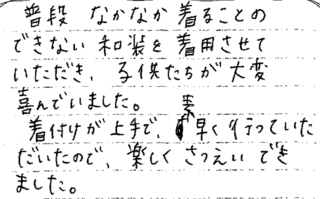 普段 なかなか 着ることの
できない 和装を 着用させて
いただき、子供たちが大変
喜んでいました。
着付けが上手で、素早く行っていた
だいたので、楽しく さつえい でき
ました。